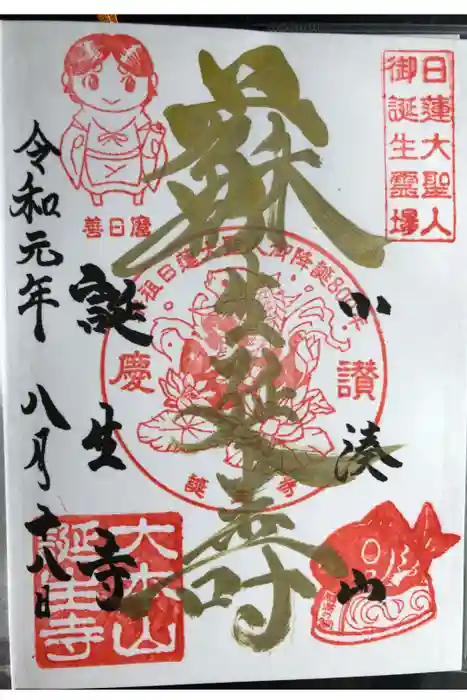 日蓮大聖人
御誕生霊場
小湊山
蘇生延寿
宗祖日蓮大聖人御降誕800年
慶
讃
誕生寺
善日麿
誕生寺
令和元年 八月十八日
大本山
誕生寺